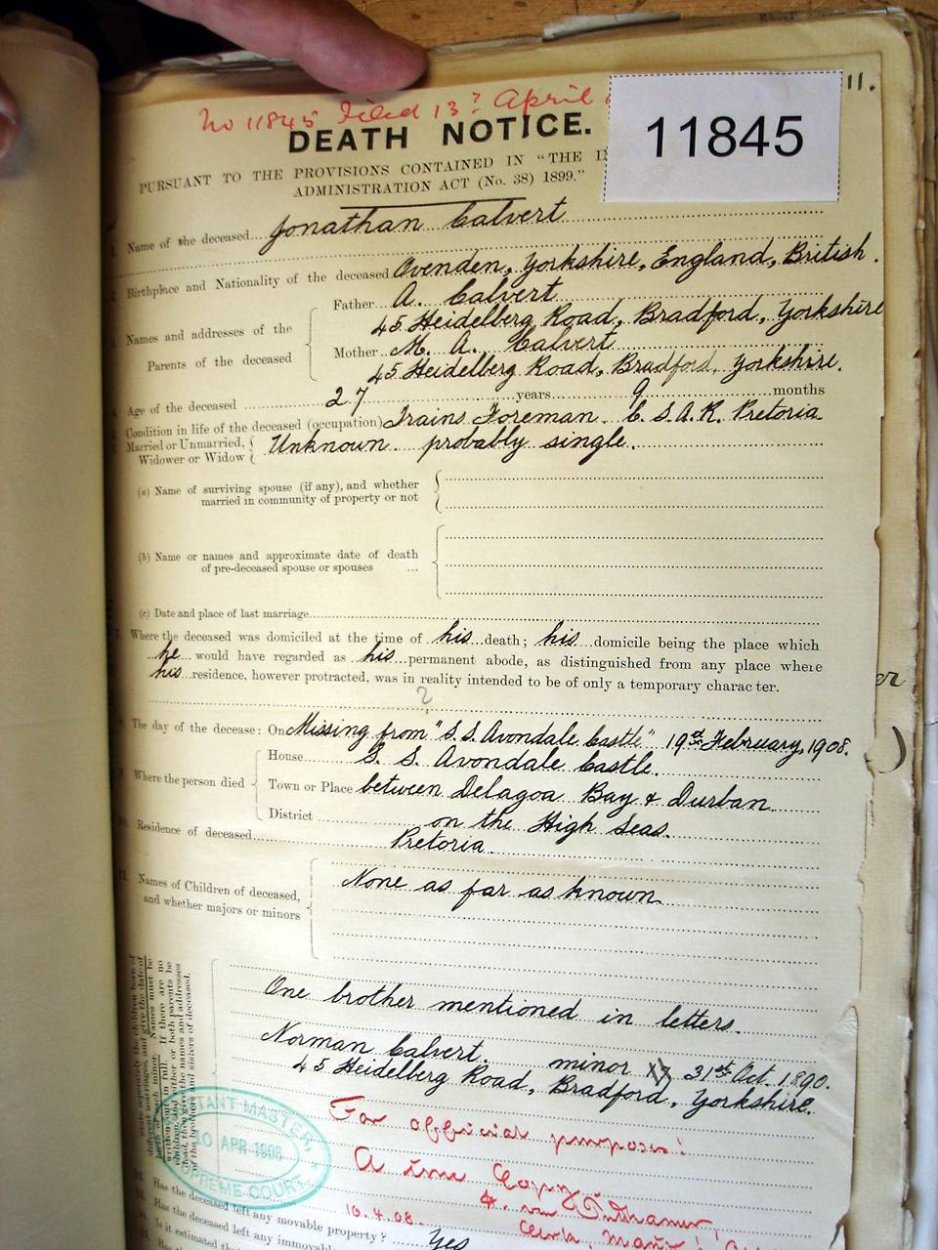 No 11845 Filed 13? April
11.
11845
DEATH NOTICE.
PURSUANT TO THE PROVISIONS CONTAINED IN "THE
ADMINISTRATION ACT (No. 38) 1899."
Name of the deceased Jonathan Calvert
Birthplace and Nationality of the deceased Ovenden, Yorkshire, England, British.
Names and addresses of the Parents of the deceased
Father A. Calvert
45 Heidelberg Road, Bradford, Yorkshire
Mother M. A. Calvert
45 Heidelberg Road, Bradford, Yorkshire.
Age of the deceased 27 years 9 months
Condition in life of the deceased (occupation) Trains Foreman C. S. A. R. Pretoria
Married or Unmarried, Widower or Widow Unknown probably single.
(a) Name of surviving spouse (if any), and whether
married in community of property or not
(b) Name or names and approximate date of death
of pre-deceased spouse or spouses ...
(c) Date and place of last marriage
Where the deceased was domiciled at the time of his death; his domicile being the place which
he would have regarded as his permanent abode, as distinguished from any place where
his residence, however protracted, was in reality intended to be of only a temporary character.
?
er
The day of the decease: On Missing from "S. S. Avondale Castle" 19th February, 1908.
Where the person died
House S. S. Avondale Castle.
Town or Place between Delagoa Bay & Durban
District on the High Seas.
Residence of deceased Pretoria.
11. Names of Children of deceased,
and whether majors or minors
None as far as known
One brother mentioned in letters.
Norman Calvert. minor 31st Oct. 1890.
45 Heidelberg Road, Bradford, Yorkshire.
TANT MASTER
10 APR 1908
SUPREME COURT
For official purposes!
A true Copy
10.4.08.
Has the deceased left any movable property? Yes
Has the deceased left any immovable
Is it estimated that